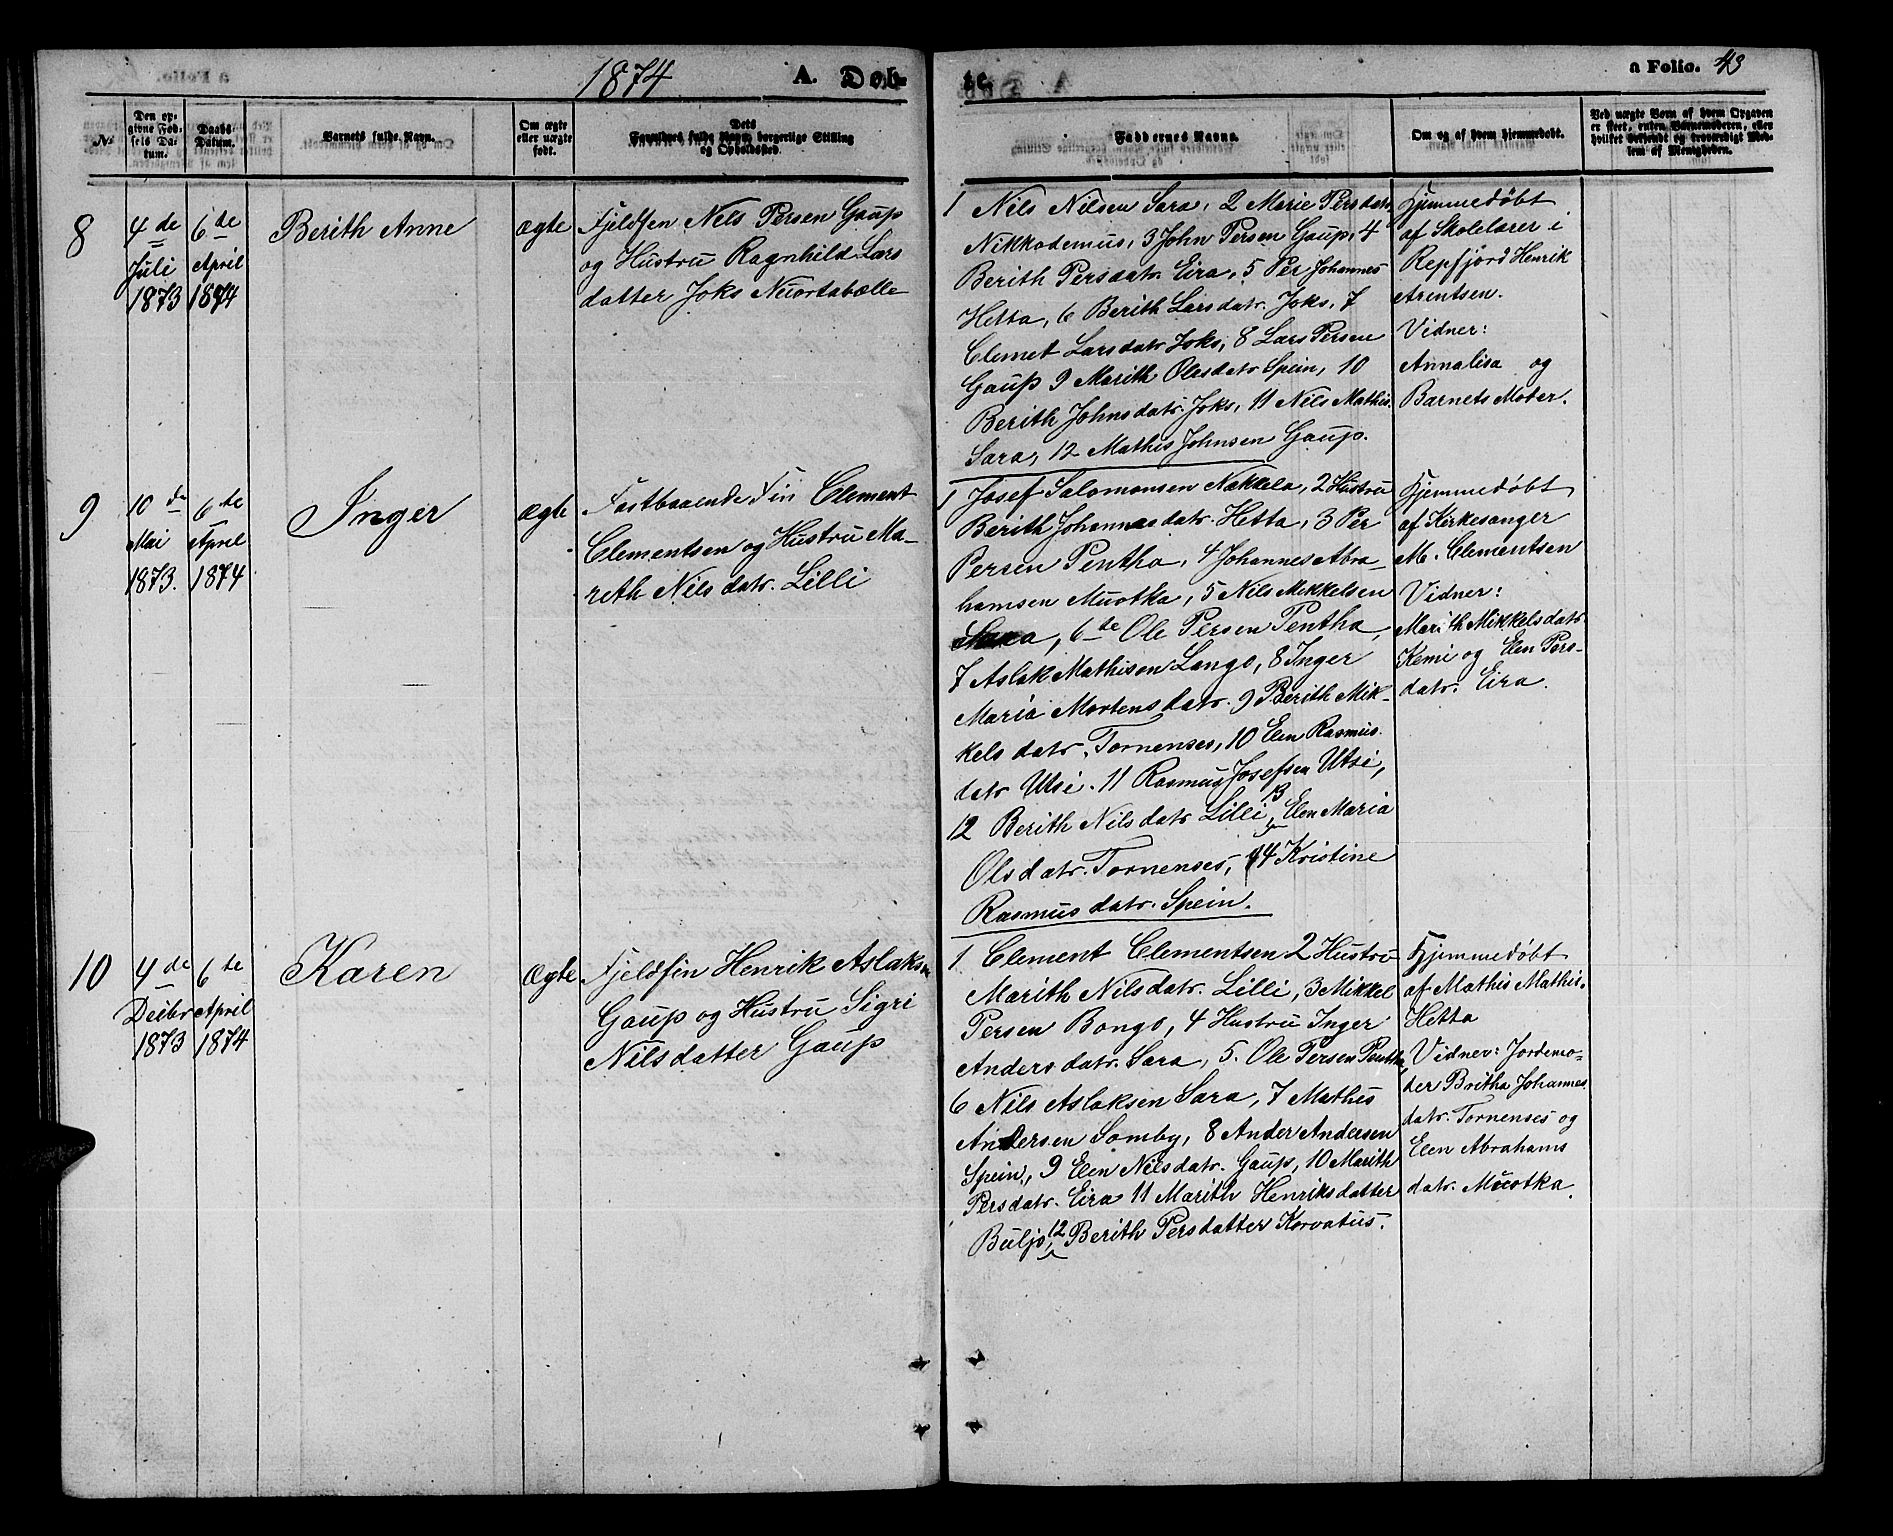 1874 A. Døb- te. a Folio. 43
No
Den opgivne Fødsels Datum.
Daabs Datum.
Barnets fulde Navn.
Om ægte eller uægte født.
Forældres fulde Navn, borgerlige Stilling og Opholdssted.
Faddernes Navne.
Om og af hvem hjemmedøbt.
Ved uægte Børn af hvem Opgaven er skeet, enten Barnemoderen, eller hvilket bekjendt og troværdigt Medlem af Menigheden.
8
4de
Juli
1873
6de
April
1874
Berith Anne
ægte
Fjeldfin Nils Persen Gaup
og Hustru Ragnhild Lars
datter Joks Nuortabælle
1 Nils Nilsen Sara, 2 Marie Persdatr.
Nikkodemus, 3 John Persen Gaup, 4
Berith Persdatr. Eira, 5 Per Johannes
Hetta, 6 Berith Larsdatr. Joks, 7
Clemet Larsdatr. Joks, 8 Lars Persen
Gaup 9 Marith Olesdatr Spein, 10
Berith Johnsdatr. Joks, 11 Nils Mathis.
Sara, 12 Mathis Johnsen Gaup.
Hjemmedøbt
af Skolelærer i
Repfjord Henrik
Arentsen.
Vidner:
Annalisa og
Barnets Moder.
9
10de
Mai
1873.
6te
April
1874
Inger
ægte
Fastboaende Fin Clement
Clementsen og Hustru Ma-
reth Nilsdatr. Lilli
1 Josef Salomonsen Nækkela, 2 Hustru
Berith Johannesdatr. Hetta, 3 Per
Persen Pentha, 4 Johannes Abra-
hamsen Muotka, 5 Nils Mikkelsen
Sara, 6te Ole Persen Pentha,
7 Aslak Mathisen Lango, 8 Inger
Maria Mortensdatr. 9 Berith Mik-
kelsdatr. Tornenses, 10 Elen Rasmus.
datr Utsi. 11 Rasmus Josefsen Utsi,
12 Berith Nilsdatr Lilli, 13 Elen Maria
Olsdatr. Tornenses, 14 Kristine
Rasmusdatr. Spein.
Hjemmedøbt
af Kirkesanger
M. Clementsen
Vidner:
Marith Mikkelsdatr.
Kemi og Elen Pers-
datr. Eira.
10
4de
Decbr
1873
6te
April
1874
Karen
Ægte
Fjeldfin Henrik Aslaksn
Gaup og Hustru Sigri
Nilsdatter Gaup
1. Clement Clementsen 2 Hustru
Marith Nilsdatr. Lilli, 3 Mikkel
Persen Bongo, 4 Hustru Inger
Andersdatr. Sara, 5. Ole Persen Pentha,
6 Nils Aslaksen Sara, 7 Mathis
Andersen Somby, 8 Ander Andersen
Spein, 9 Elen Nilsdatr. Gaup, 10 Marith
Persdatr. Eira 11 Marith Henriksdatter
Buljo, 12 Berith Persdatter Korvatus.
Hjemmedøbt
af Mathis Mathis.
Hetta
Vidner: Jordemo-
der Britha Johannes.
datr. Tornenses og
Elen Abrahams
datr. Muotka.